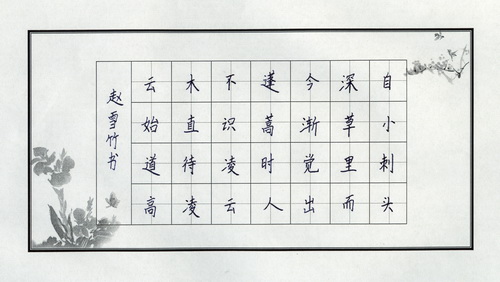 自小刺头
深草里而
今渐觉出
蓬蒿时人
不识凌云
木直待凌
云始道高
赵雪竹书